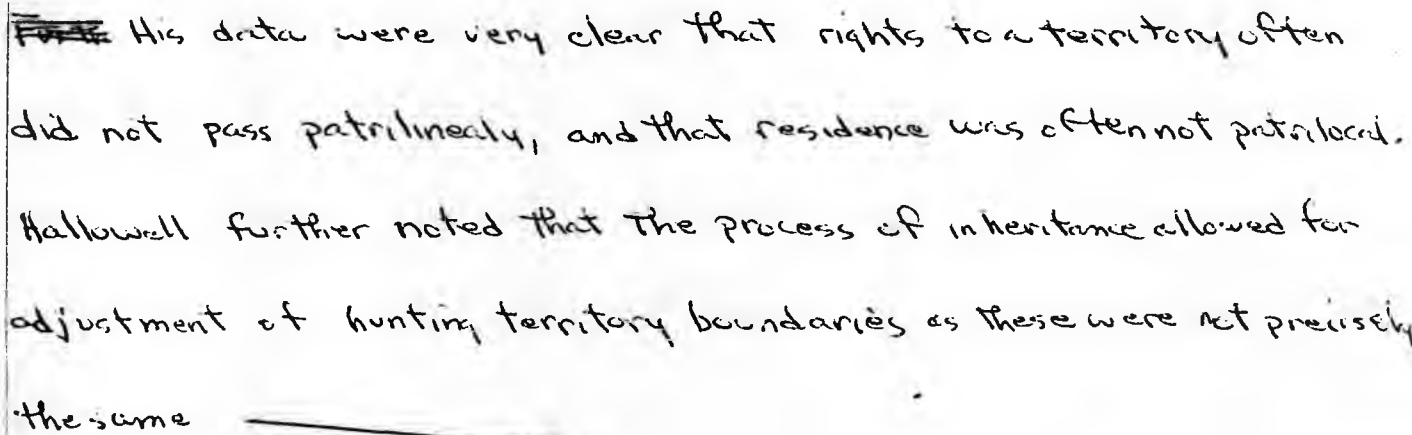 His data were very clear that rights to a territory often
did not pass patrilinealy, and that residence was often not patrilocal.
Hallowell further noted that the process of inheritance allowed for
adjustment of hunting territory boundaries as these were not precisely
the same